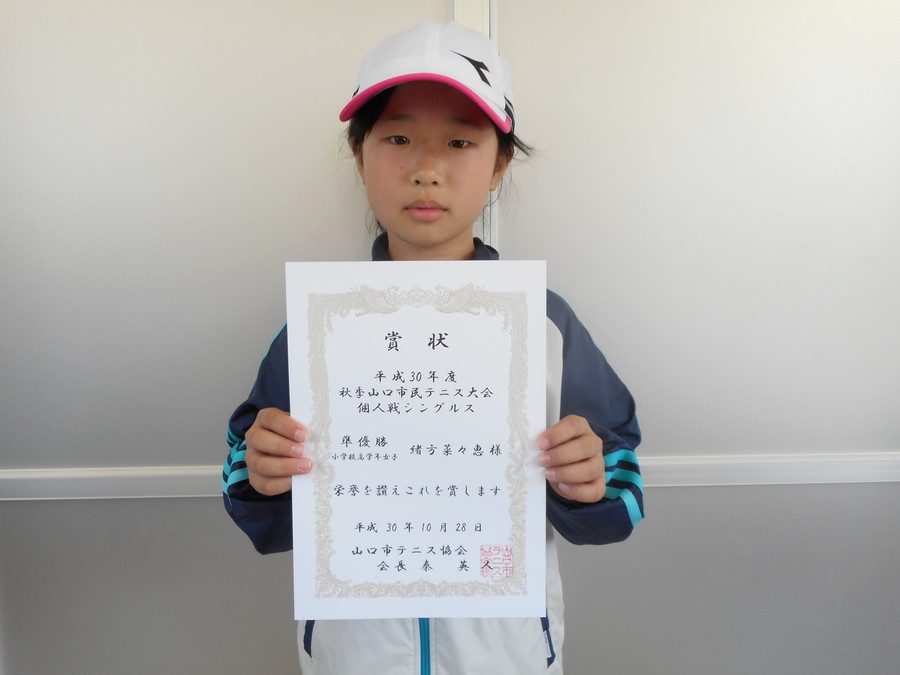 賞状
平成30年度
秋季山口市民テニス大会
個人戦シングルス
準優勝
小学校高学年女子
緒方菜々恵様
栄誉を讃えこれを賞します
平成30年10月28日
山口市テニス協会
会長 秦 英